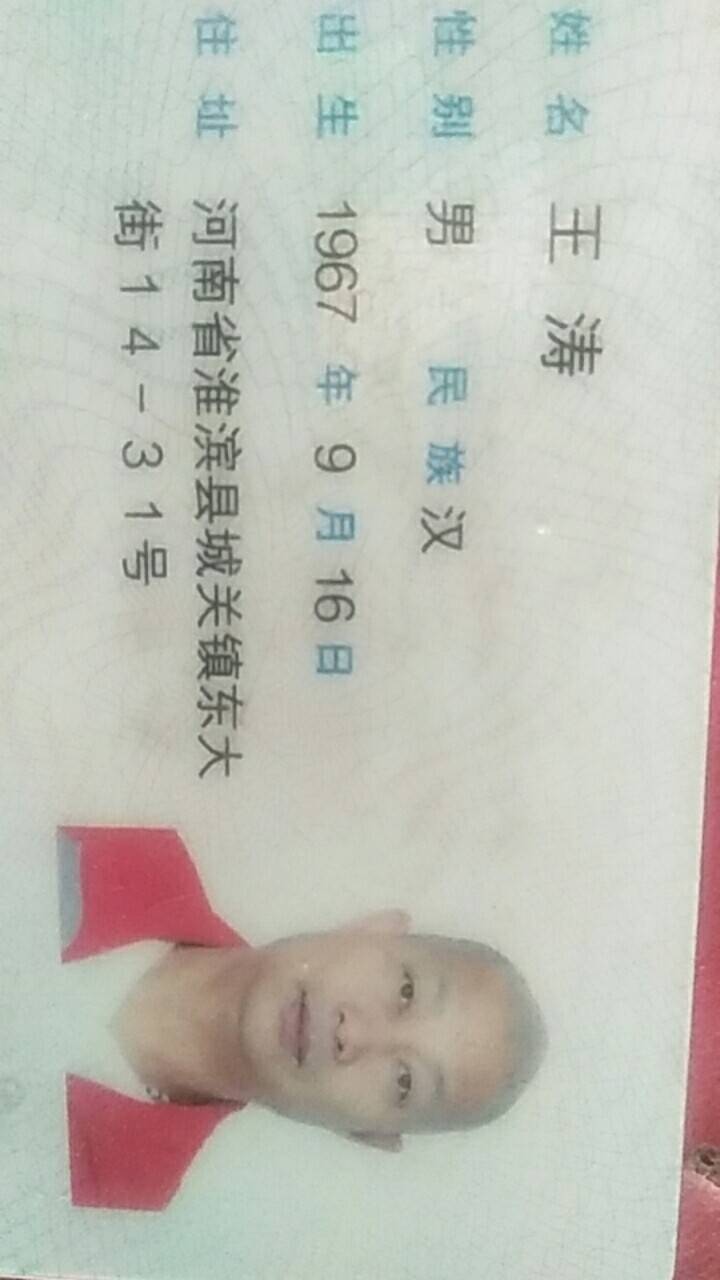 姓名 王涛
性别 男 民族 汉
出生 1967 年 9 月 16 日
住址 河南省淮滨县城关镇东大
街14-31号